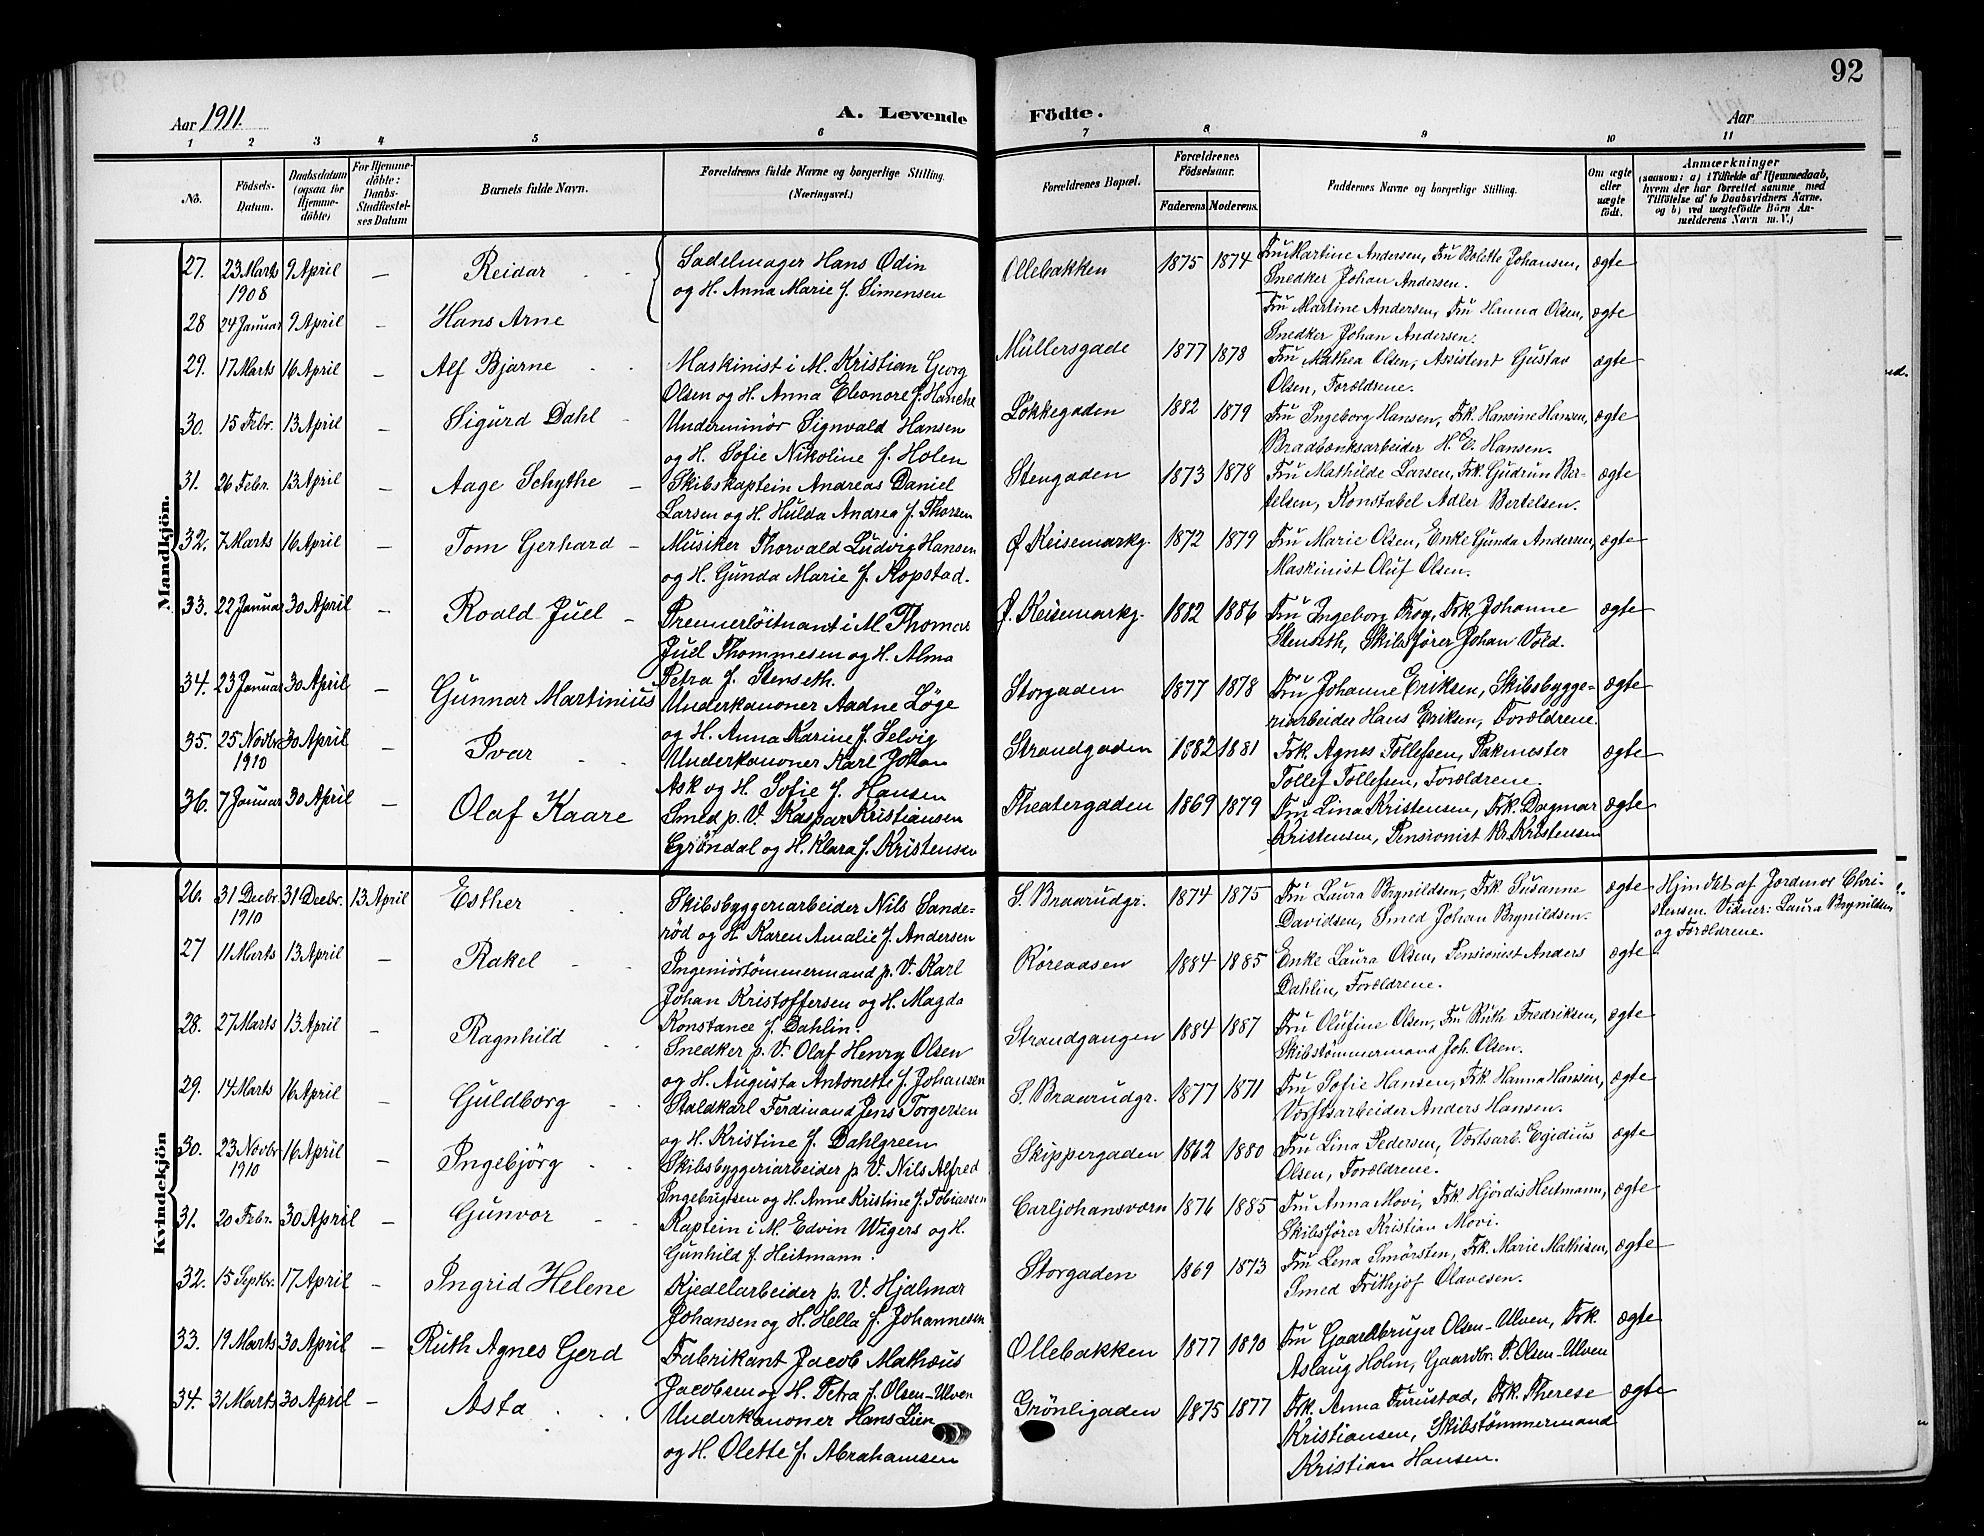 92
Aar 1911.
A. Levende Födte.
Aar
1 2 3 4 5 6 7 8 9 10 11
No.
Födsels-
Datum.
Daabsdatum
(ogsaa for
Hjemme-
döbte)
For Hjemme-
döbte:
Daabs-
Stadfæstel-
ses Datum
Barnets fulde Navn.
Forældrenes fulde Navne og borgerlige Stilling.
(Næringsvei.)
Forældrenes Bopæl.
Forældrenes
Födselsaar.
Faderens. Moderens.
Faddernes Navne og borgerlige Stilling.
Om ægte
eller
uægte
födt.
Anmærkninger
(saasom: a) i Tilfælde af Hjemmedaab,
hvem der har forrettet samme med
Tilföielse af to Daabsvidners Navne.
og b) ved uægtefödte Börn An-
melderens Navn m. V.)
Mandkjön.
27. 23 Marts 1908 9 April – Reidar
Sadelmager Hans Odin
og H. Anna Marie f. Simensen
Ollebakken 1875 1874
Fru Martine Andersen, Fru Bolette Johansen,
Snedker Johan Andersen.
ægte
28 24 Januar 9 April – Hans Arne
Fru Martine Andersen, Fru Hanna Olsen,
Snedker Johan Andersen.
ægte
29. 17 Marts 16 April – Alf Bjarne
Maskinist i M. Kristian Georg
Olsen og H. Anna Eleonore f. Hanche
Müllersgade 1877 1878
Fru Mathea Olsen, Assistent Gustav
Olsen, Forældrene.
ægte
30. 15 Febr. 13 April – Sigurd Dahl
Underminör Signvald Hansen
og H. Sofie Nikoline f. Holen
Løkkegaden 1882 1879
Fru Ingeborg Hansen, Frk. Hansine Hansen,
Bradbænksarbeider H. E. Hansen.
ægte
31. 26 Febr. 13 April – Aage Schythe
Skibskaptein Andreas Daniel
Larsen og H. Hulda Andrea f. Thorsen
Stengaden 1873 1878
Fru Mathilde Larsen, Frk. Gudrun Ber-
telsen, Konstabel Adler Bertelsen.
ægte
32. 7 Marts 16 April – Tom Gerhard
Musiker Thorvald Ludvig Hansen
og H. Gunda Marie f. Kopstad.
Ø. Keisemarkg. 1872 1879
Fru Marie Olsen, Enke Gunda Andersen,
Maskinist Oluf Olsen.
ægte
33. 22 Januar 30 April – Roald Juel
Premierlöitnant i M. Thomas
Juel Thommesen og H. Alma
Petra f. Stenseth.
Ø. Keisemarkg. 1882 1886
Fru Ingeborg Krog, Frk. Johanne
Stenseth, Skibsfører Johan Vold.
ægte
34. 23 Januar 30 April – Gunnar Martinius
Underkanoner Aadne Løge
og H. Anna Karine f. Selvig
Storgaden 1877 1878
Fru Johanne Eriksen, Skibsbygge-
riarbeider Hans Eriksen, Forældrene.
ægte
35. 25 Novbr 1910 30 April – Ivar
Underkanoner Karl Johan
Ask og H. Sofie f. Hansen
Strandgaden 1882 1881
Frk. Agnes Tollefsen, Pakmester
Tollef Tollefsen, Forældrene.
ægte
36. 7 Januar 30 April – Olaf Kaare
Smed p. V. Kaspar Kristiansen
Egröndal og H. Klara f. Kristensen
Theatergaden 1869 1879
Fru Lina Kristensen, Frk. Dagmar
Kristensen, Pensionist Kr. Kristensen
ægte
Kvindekjön
26. 31 Decbr 1910 31 Decbr. 13 April Esther
Skibsbyggeriarbeider Nils Sande-
röd og H. Karen Amalie f. Andersen
S. Braarudgr. 1874 1875
Fru Laura Brynildsen, Frk. Susanne
Davidsen, Smed Johan Brynildsen.
ægte
Hjmdbt. af Jordmor Chri-
stensen. Vidner: Laura Brynildsen
og Forældrene.
27 11 Marts 13 April – Rakel
Ingeniörtömmermand p. V. Karl
Johan Kristoffersen og H. Magda
Konstance f. Dahlin.
Röreaasen 1884 1885
Enke Laura Olsen, Pensionist Anders
Dahlin, Forældrene.
ægte
28. 27 Marts 13 April – Ragnhild
Snedker p. V. Olaf Henry Olsen
og H. Augusta Antonette f. Johansen
Strandgangen 1884 1887
Fru Olufine Olsen, Fru Ruth Fredriksen,
Skibstömmermand Joh. Olsen.
ægte
29. 14 Marts 16 April – Guldborg
Staldkarl Ferdinand Jens Torgersen
og H. Kristine f. Dahlgreen
S. Braarudgr. 1877 1871
Fru Sofie Hansen, Frk. Hanna Hansen,
Værftsarbeider Anders Hansen.
ægte
30. 23 Novbr 1910 16 April – Ingebjörg
Skibsbyggeriarbeider p. V. Nils Alfred
Ingebrigtsen og H. Anne Kristine f. Tobiassen
Skippergaden 1862 1880
Fru Lina Pedersen, Værftsarb. Egidius
Olsen, Forældrene.
ægte
31. 20 Febr. 30 April – Gunvor
Kaptein i M. Edvin Wigers og H.
Gunhild f. Heitmann.
Carljohansværn 1876 1885
Fru Anna Movi, Frk. Hjördis Heitmann,
Skibsfører Kristian Movi.
ægte
32. 15 Septbr. 17 April – Ingrid Helene
Kjedelarbeider p. V. Hjalmar
Johansen og H. Hella f. Johannesen
Storgaden 1869 1873
Fru Lina Smörsten, Frk. Marie Mathisen,
Smed Frithjof Olavesen.
ægte
33. 19 Marts 30 April – Ruth Agnes Gerd
Fabrikant Jacob Mathæus
Jacobsen og H. Petra f. Olsen-Ulven
Ollebakken 1877 1890
Fru Gaardbruger Olsen-Ulven, Frk.
Aslaug Holm, Gaardbr. P. Olsen-Ulven
ægte
34. 31 Marts 30 April – Asta
Underkanoner Hans Lien
og H. Olette f. Abrahamsen
Grönligaden 1875 1877
Frk. Anna Furustad, Frk. Therese
Kristiansen, Skibstömmermand
Kristian Hansen.
ægte